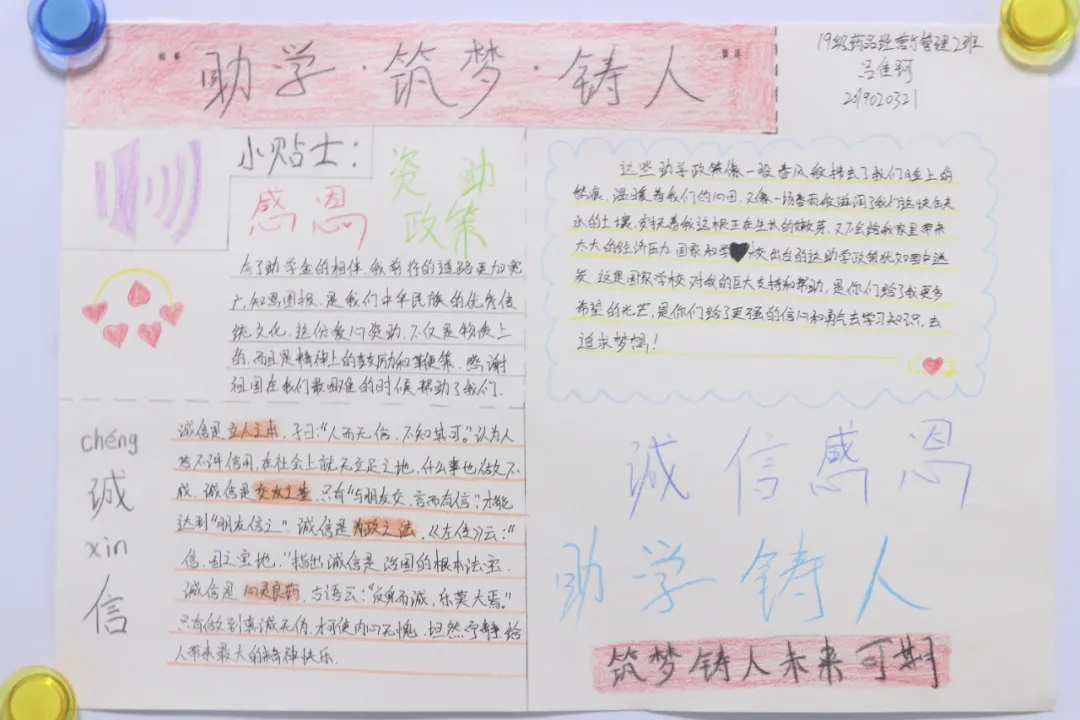 助学·筑梦·铸人
19级药品经营与管理2班
吕佳珂
2019020321
小贴士：
感恩
资助
政策
有了助学金的相伴，我前行的道路更加宽
广，知恩图报，是我们中华民族的优秀传
统文化，这份爱心资助，不仅是物质上
的，而且是精神上的鼓励和鞭策。感谢
祖国在我们最困难的时候帮助了我们.
这些助学政策像一股春风般拂去了我们脸上的
愁痕，温暖着我们的心田，又像一场春雨般滋润了我们这块缺
水的土壤，安抚着我这根正在生长的嫩芽，又不会给我家里带来
太大的经济压力，国家和学校出台的这助学政策犹如雪中送
炭，这是国家学校对我的巨大支持和帮助，是你们给了我更多
希望的光芒，是你们给了更强的信心和勇气去学习知识，去
追求梦想！
chéng
诚
xìn
信
诚信是立人之本，子曰：“人而无信，不知其可。”认为人
若不讲信用，在社会上就无立足之地，什么事也做不
成。诚信是交友之基，只有“与朋友交，言而有信”，才能
达到“朋友信之”。诚信是为政之法，《左传》云：“
信，国之宝地，”指出诚信是治国的根本法宝.
诚信是心灵良药，古语云：“反身而诚，乐莫大焉。”
只有做到真诚无伪，才可使内心无愧，坦然宁静，给
人带来最大的精神快乐.
诚信感恩
助学铸人
筑梦铸人未来可期